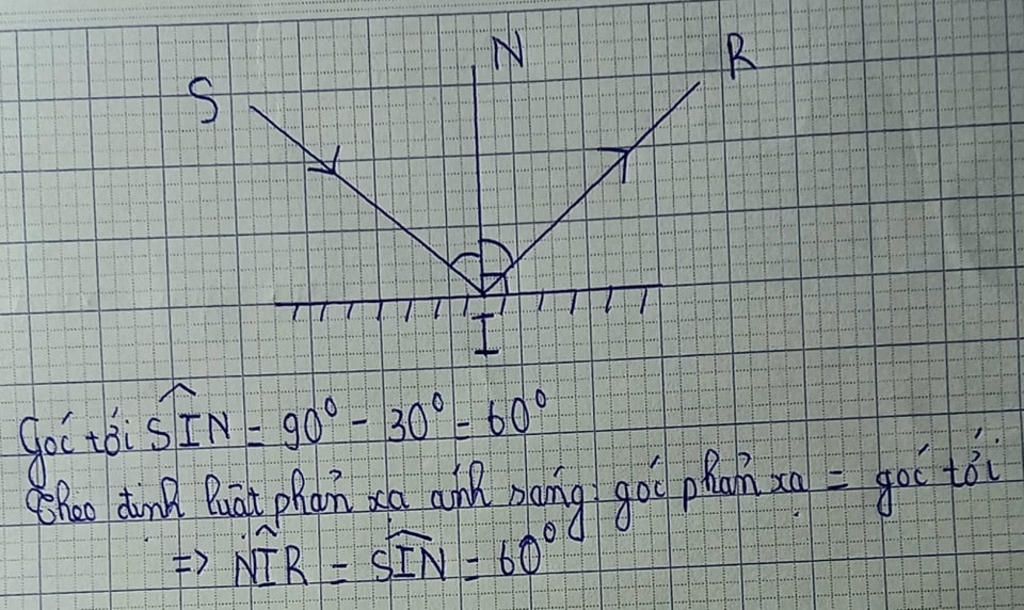 N
R
S
I
Góc tới SÎN = 90⁰ - 30⁰ = 60⁰
Theo định luật phản xạ ánh sáng: góc phản xạ = góc tới
=> NÎR = SÎN = 60⁰